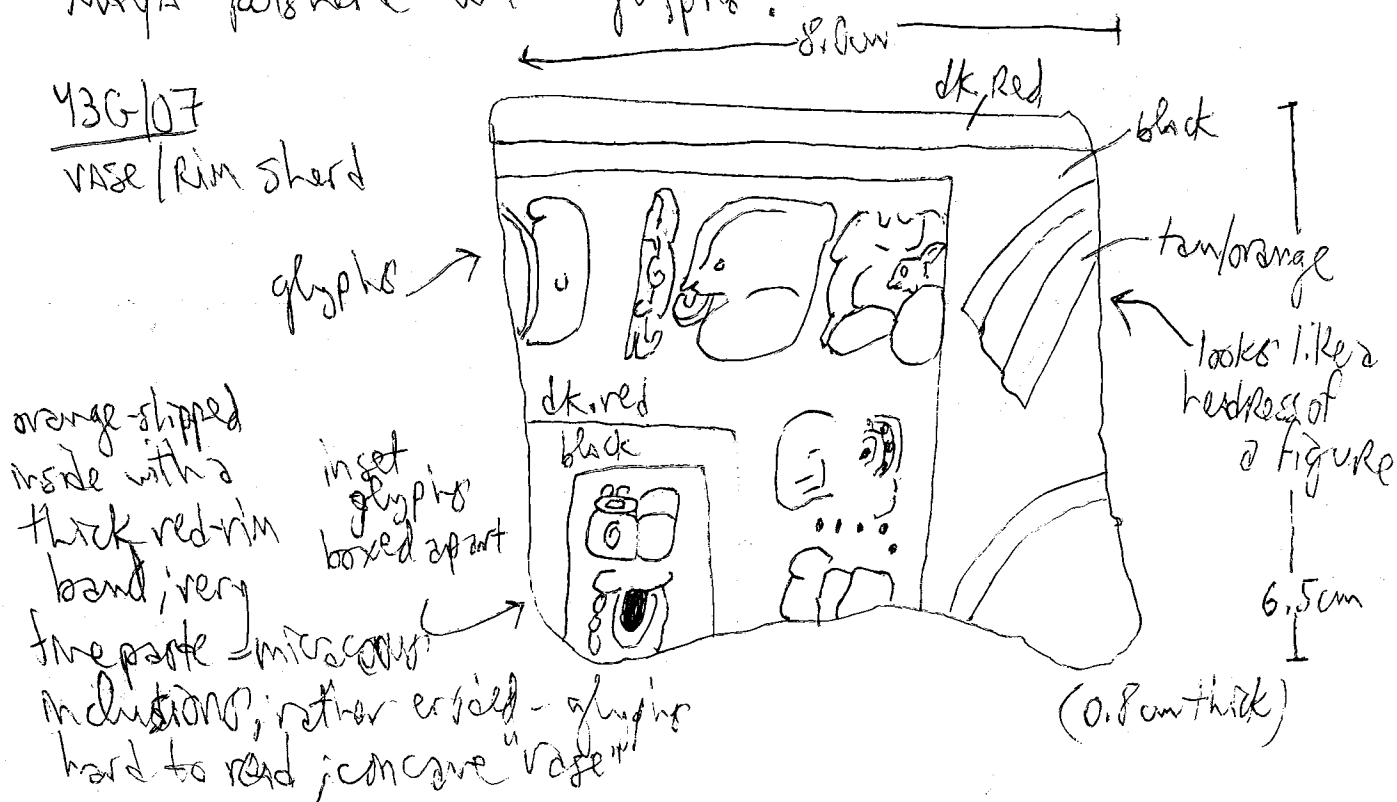 MAYA potsherd w/ glyphs:
8.0cm
Y3G/07
VASE/Rim sherd
dk. Red
black
tan/orange
looks like a
headress of
a figure
glyphs
dk. red
black
inset
glyphs
boxed apart
orange-slipped
inside with a
thick red-rim
band; very
fine paste - micaceous
inclusions; rather eroded - glyphs
hard to read; concave "vase"
6.5cm
(0.8cm thick)